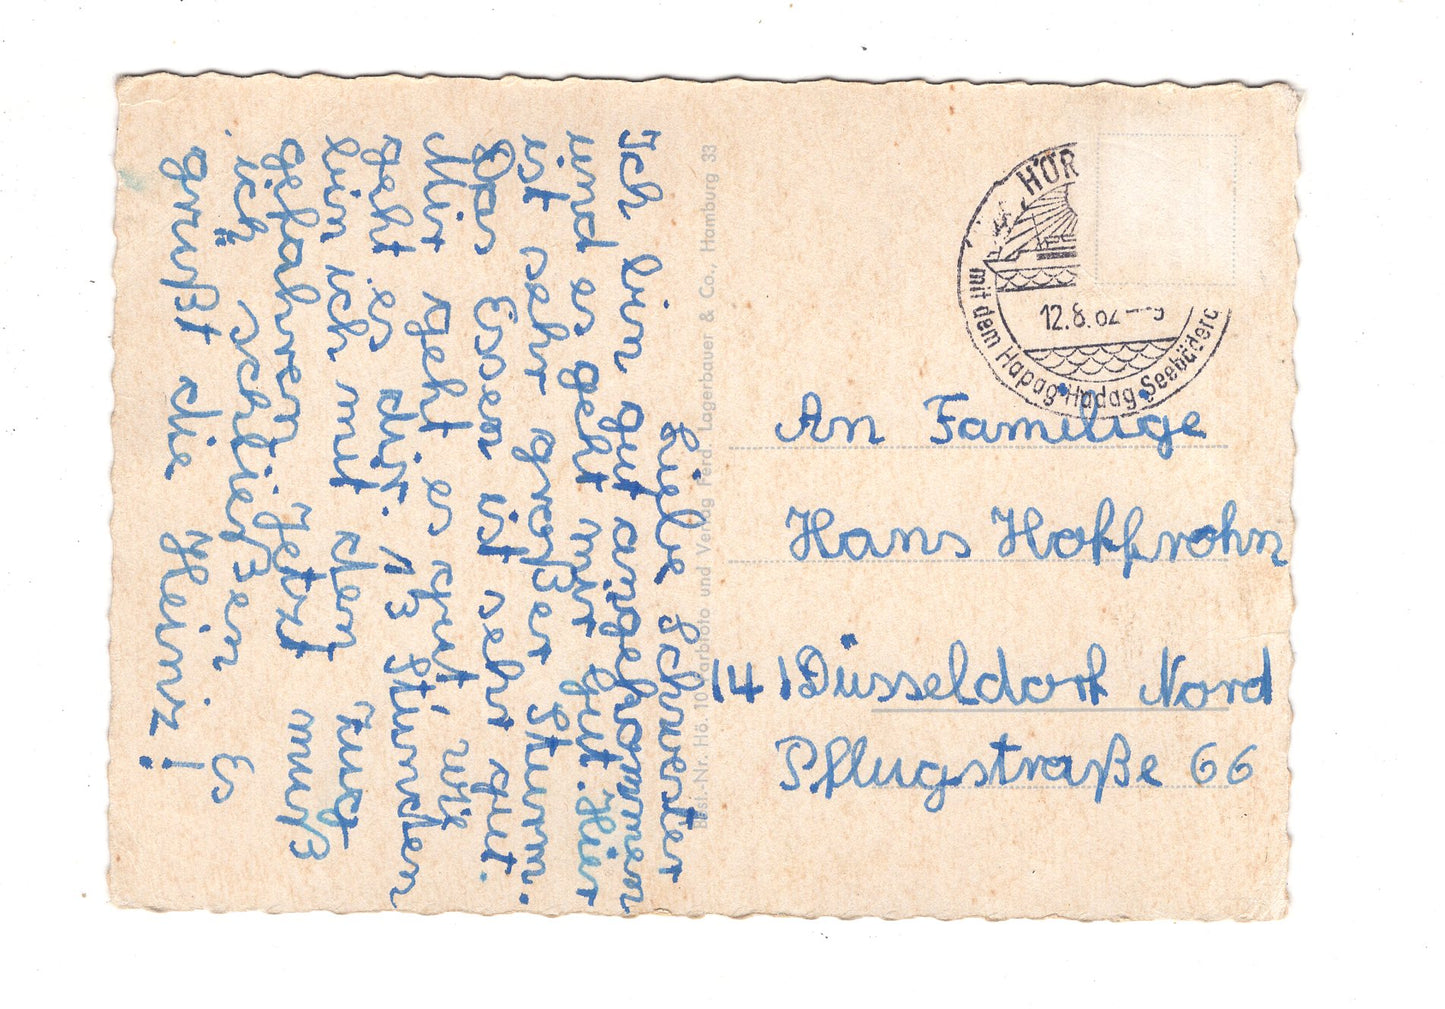 Liebe Schwester
Ich bin gut angekommen
und es geht mir gut. Hier
ist sehr großer Sturm.
Das Essen ist sehr gut.
Mir geht es gut wie
geht es dir. 13 Stunden
bin ich mit den Zug
gefahren. Jetzt muß
ich schließen. Es
grußt die Heinz!
Best.-Nr. Hö. 10 Farbfoto und Verlag Ferd. Lagerbauer & Co., Hamburg 33
HÖR
12.8.62
mit dem Hapag-Hadag Seebäderd
An Familige
Hans Hokfrohn
141 Düsseldorf Nord
Pflugstraße 66